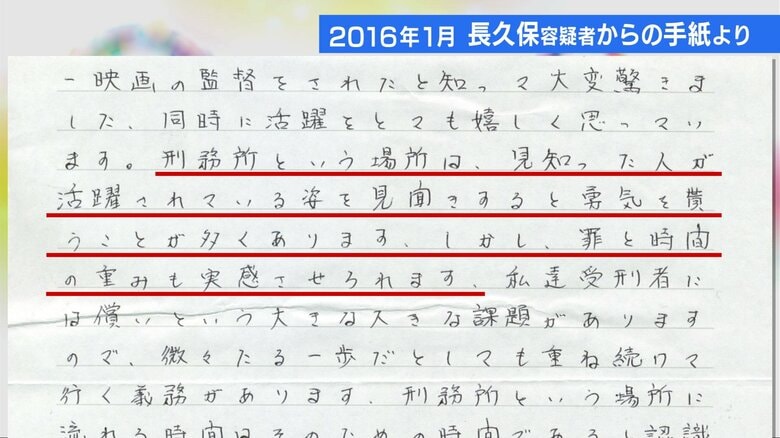 2016年1月 長久保容疑者からの手紙より
ー映画の監督をされたと知って大変驚きま
した、同時に活躍をとても嬉しく思ってい
ます。刑務所という場所は、見知った人が
活躍されている姿を見聞きすると勇気を貰
うことが多くあります、しかし、罪と時間
の重みも実感させられます、私達受刑者に
は償いという大きな大きな課題があります
ので、微々たる一歩だとしても重ね続けて
行く義務があります、刑務所という場所に
流れる時間はそのための時間であると認識